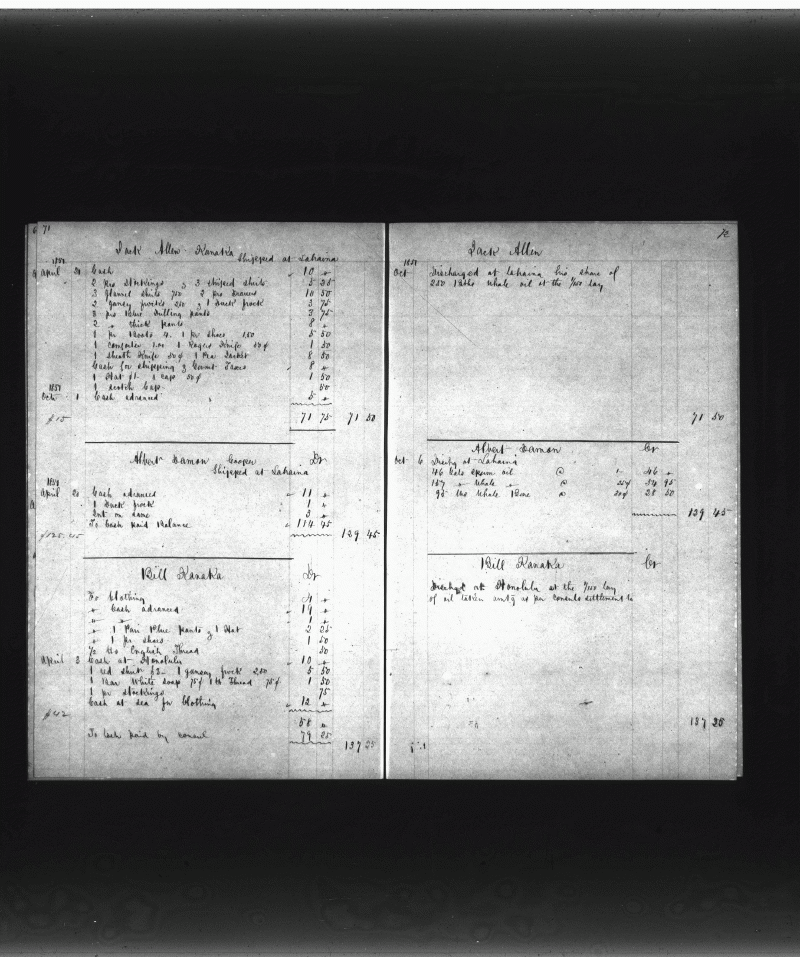 71
Jack Allen Kanaka
Shipped at Lahaina
April 20 Cash 10 "
2 prs Stockings 3 striped shirts 5 25
3 flannel shirts 2 prs Drawers 10 50
2 1 Duck frock 3 75
pants 3 75
2 " thick pants 8 "
1 pr Boots 1 pr shoes 1.50 5 50
1 Comforter 1 Knife 50¢ 1 50
1 Sheath Knife 50¢ 1 Pea Jacket 8 50
Cash for shipping & Taxes 8 "
1 Hat $1 1 Cap 50¢ 1 50
1 Scotch Cap 50
Oct 1 Cash advanced 5 "
71 75 71 50
Albert Damon Cooper Dr
Shipped at Lahaina
April 20 Cash advanced 11 "
1 Duck frock 1 "
Int on same 3 "
To Cash paid Balance 114 45
129 45
Bill Kanaka Dr
To Clothing 4 "
" Cash advanced 14 "
" " 1 "
" 1 Pair Blue pants & 1 Hat 2 25
" 1 pr shoes 1 50
English Thread 50
April 3 Cash at Honolulu 10 "
1 red shirt 1 gansey frock 5 50
1 Bar White soap 75¢ Thread 75¢ 1 50
1 pr stockings 75
Cash at sea for Clothing 12 "
$42
To Cash paid by consul 79 25
137 25
72
Jack Allen
Oct Discharged at Lahaina his share of
250 Bbls Whale oil at the lay
71 50
Albert Damon Cr
Oct 6 Dischg at Lahaina
46 Gals Sperm oil @ 1- 46 "
157 " Whale " @ 54 95
95 lbs Whale Bone @ 30¢ 28 50
129 45
Bill Kanaka Cr
at Honolulu at the lay
of oil taken as per consuls settlement
137 25